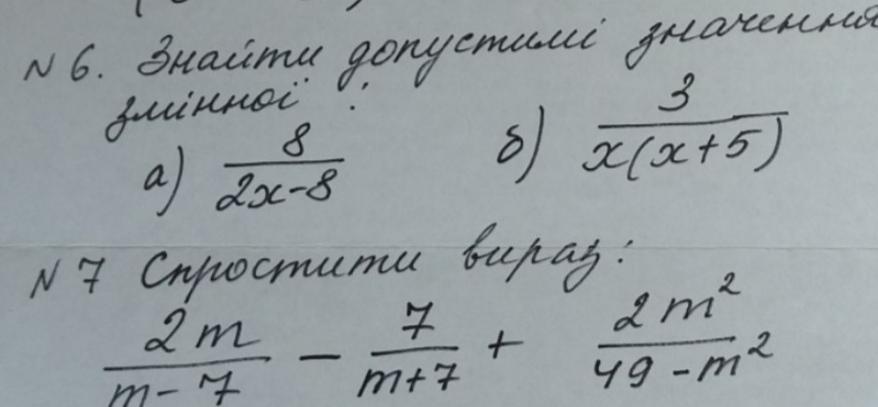 N 6. Знайти допустимі значення
змінної :
а) 8/(2x-8) б) 3/(x(x+5))
N 7 Спростити вираз:
2m/(m-7) - 7/(m+7) + 2m²/(49-m²)